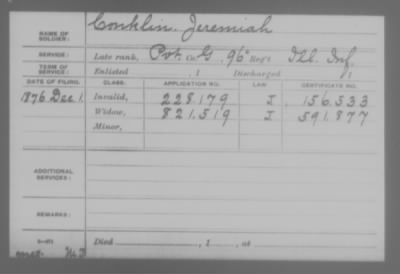 NAME OF SOLDIER: Conklin, Jeremiah
SERVICE: Late rank, Pvt. Co. G, 96" Reg't Ill. Inf.
TERM OF SERVICE: Enlisted , 1 Discharged , 1
DATE OF FILING. CLASS. APPLICATION NO. LAW. CERTIFICATE NO.
1876 Dec 1. Invalid, 228.179 J. 156.533
Widow, 821.519 J 591.877
Minor,
ADDITIONAL SERVICES:
REMARKS:
Died , 1 , at